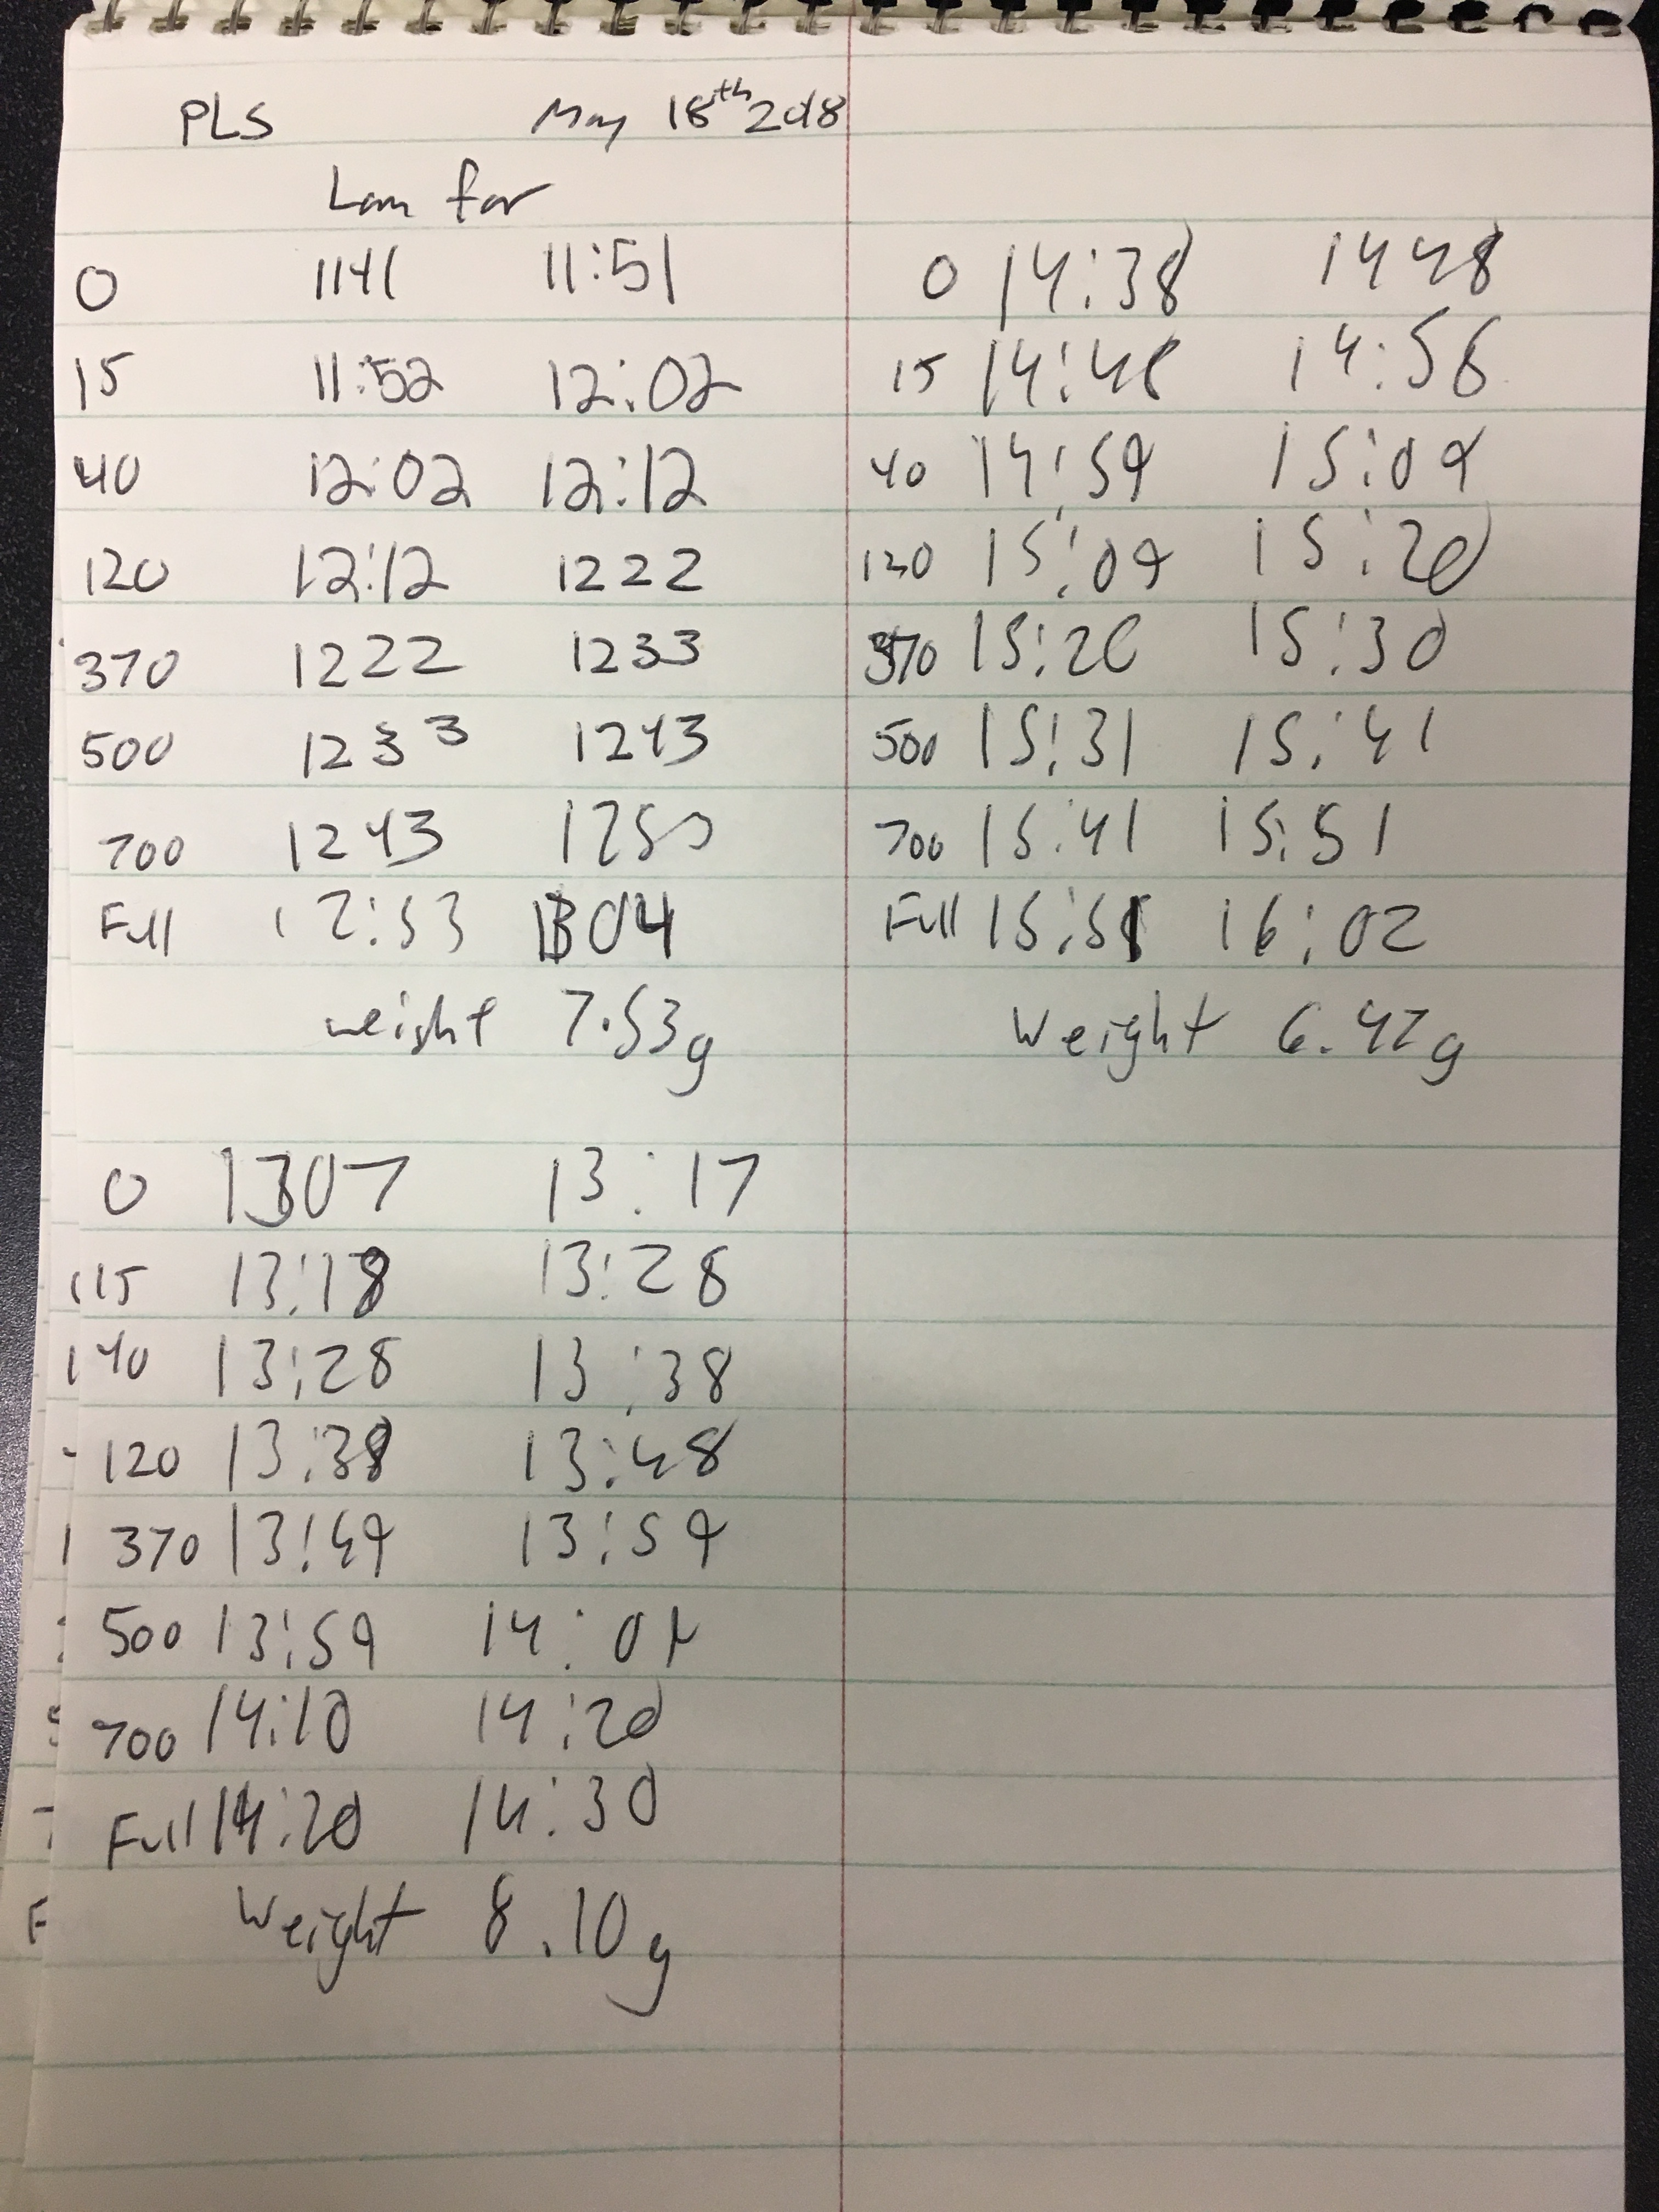 PLS May 18th 2018
Lam far
0 1141 11:51
15 11:52 12:02
40 12:02 12:12
120 12:12 1222
370 1222 1233
500 1233 1243
700 1243 1253
Full 12:53 1304
weight 7.53g
0 1307 13:17
15 13:18 13:28
40 13:28 13:38
120 13:38 13:48
370 13:49 13:59
500 13:59 14:09
700 14:10 14:20
Full 14:20 14:30
Weight 8.10g
0 14:38 1448
15 14:48 14:58
40 14:59 15:09
120 15:09 15:20
370 15:20 15:30
500 15:31 15:41
700 15:41 15:51
Full 15:51 16:02
Weight 6.47g